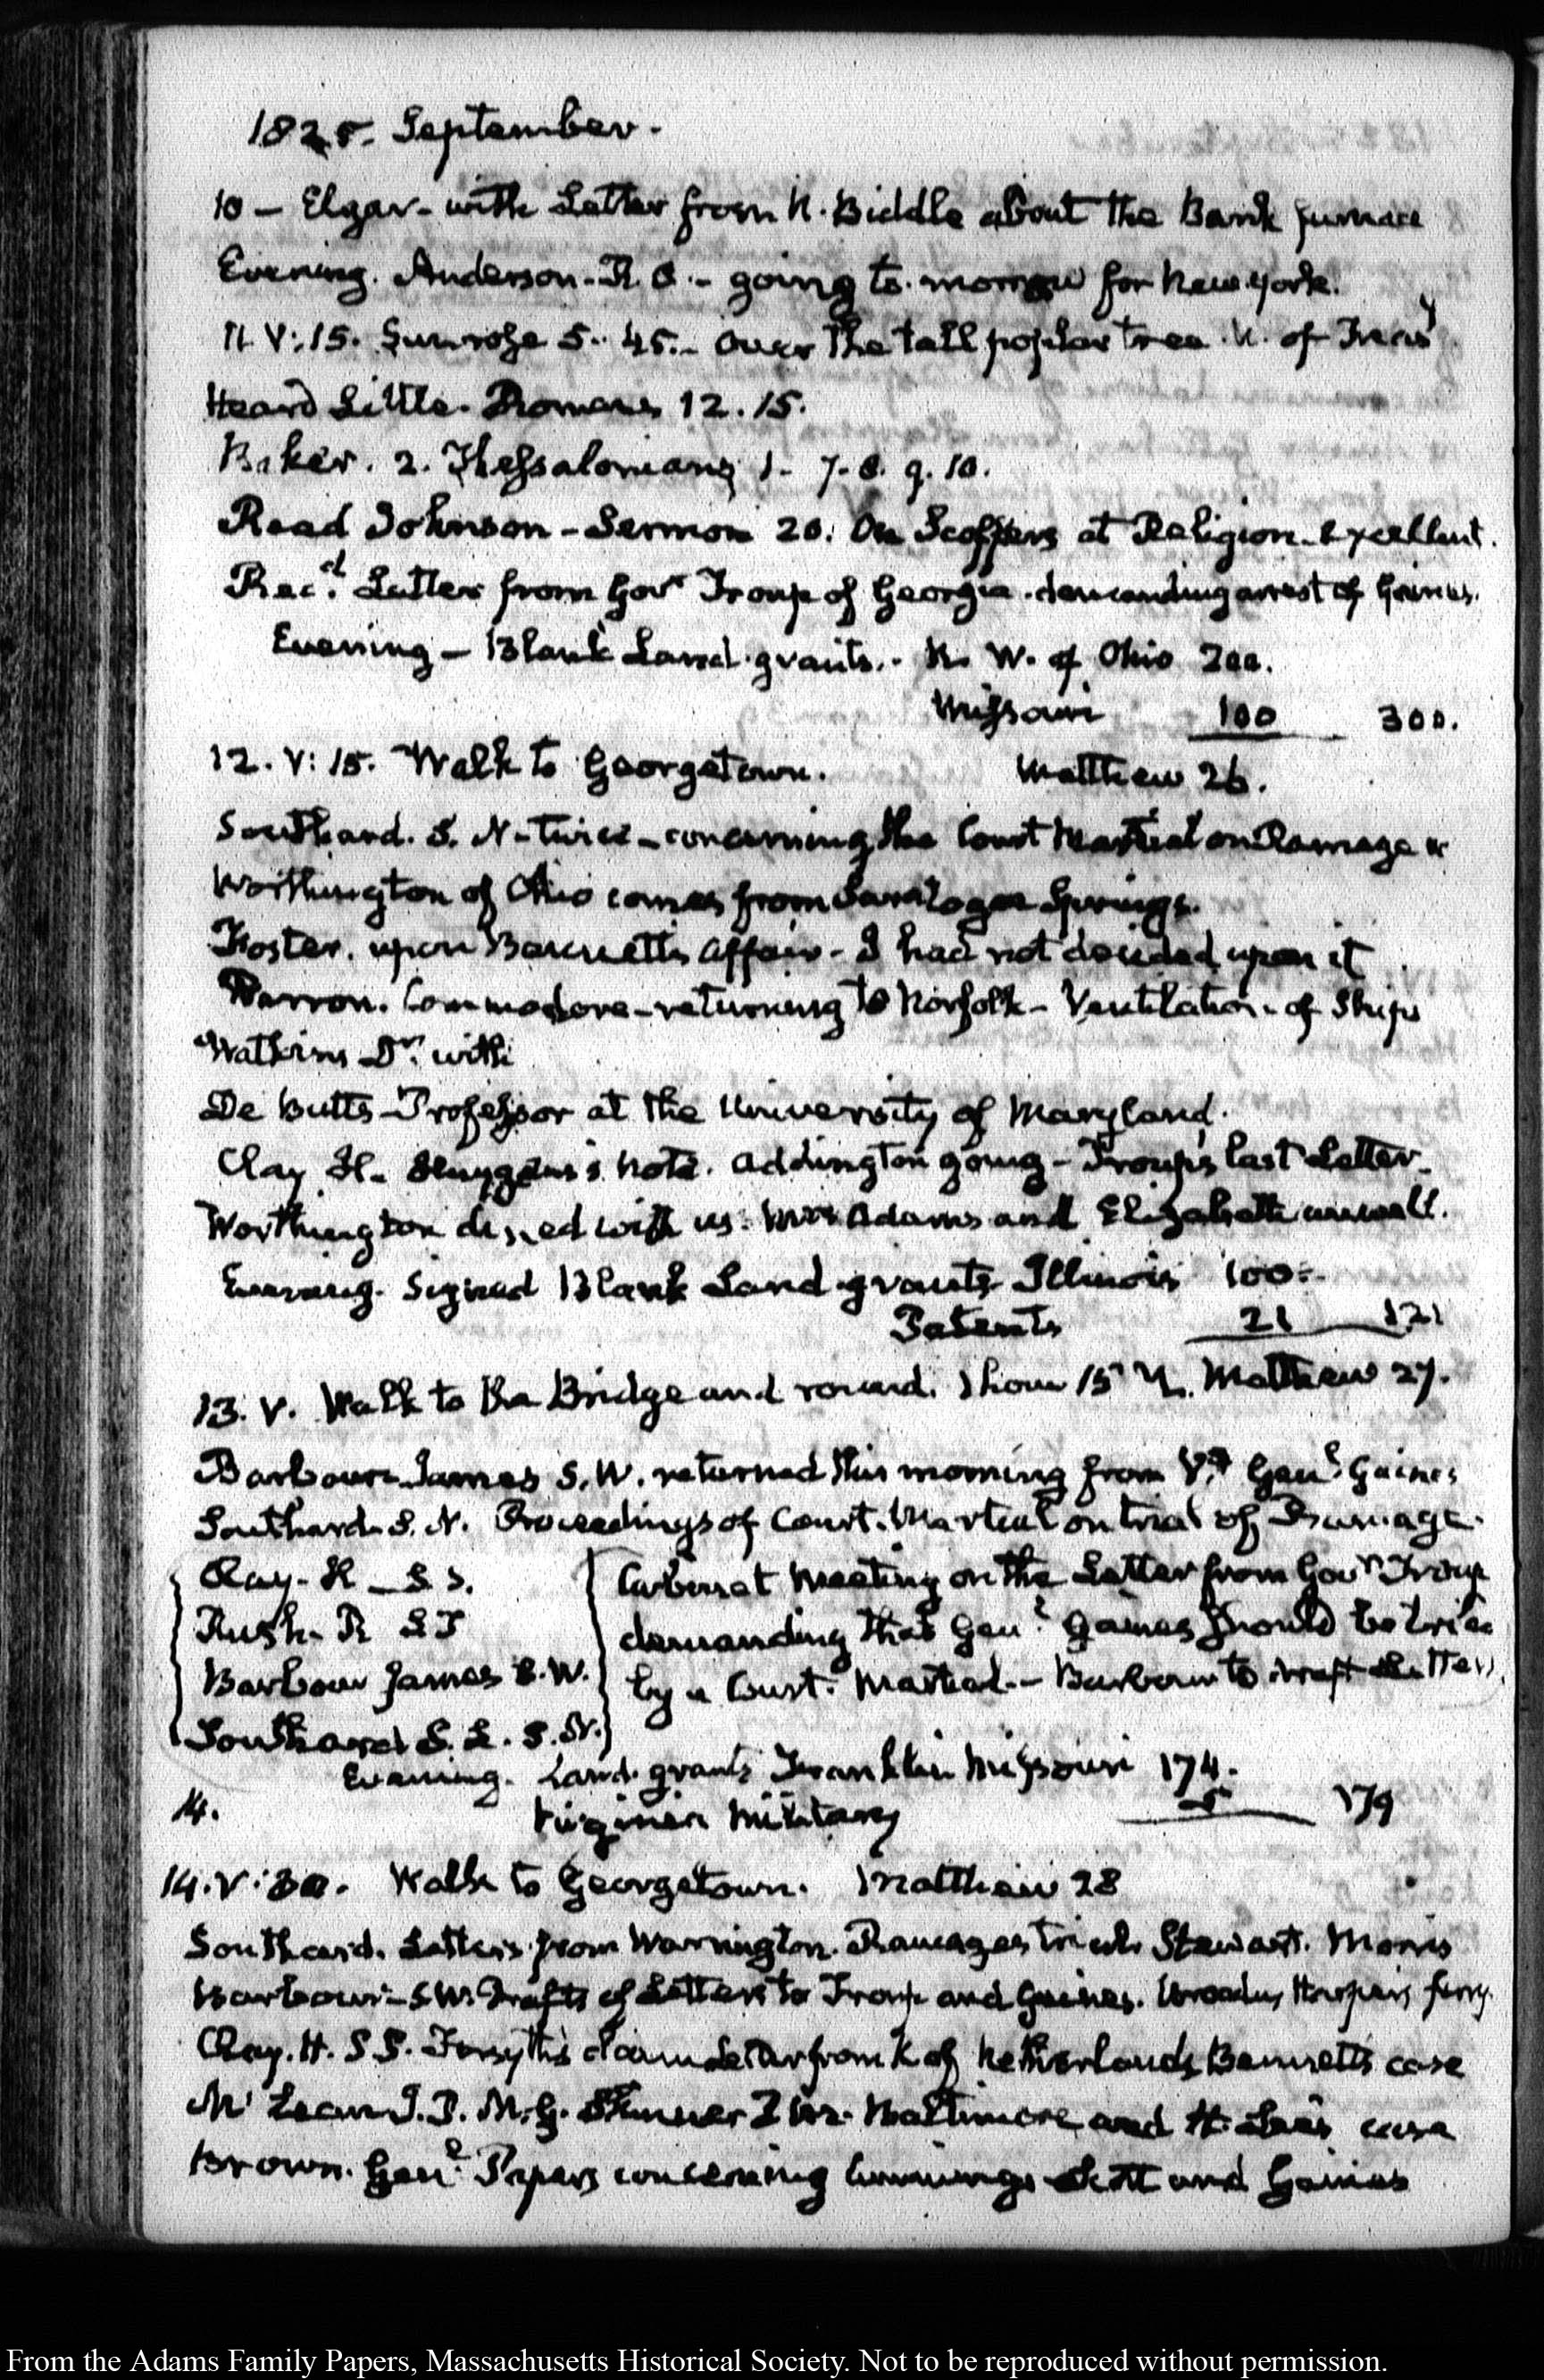 1825. September.
10 — Elgar — with Letter from N. Biddle about the Bank furnace
Evening. Anderson — R. C. — going to morrow for New York.
11. V: 15. Sun rose 5. 45. — over the tall poplar tree N. of Treasy
Heard Little. Romans 12. 15.
Baker. 2. Thessalonians 1. 7. 8. 9. 10.
Read Johnson — Sermon 20. On Scoffers at Religion. Excellent.
Recd. Letter from Govr Troup of Georgia. demanding arrest of Gaines.
Evening — Blank Land. grants. — N. W. of Ohio 200.
Missouri 100 300.
12. V: 15. Walk to Georgetown. Matthew 26.
Southard. S. N — twice — concerning the Court Martial on Ramage &
Worthington of Ohio comes from Saratoga Springs.
Foster. upon affair — I had not decided upon it
Barron. Commodore — returning to Norfolk — Ventilation of Ships
Watkins Dr. with
De Butts — Professor at the University of Maryland.
Clay H. Huygens's Note. Addington going — Troup's last Letter.
Worthington dined with us. Mrs Adams and Elizabeth unwell.
Evening. Signed Blank Land grants Illinois 100.
Patents 21 121
13. V. Walk to the Bridge and round. 1 hour 15 Matthew 27.
Barbour James S. W. returned this morning from Va. Genl. Gaines
Southard. S. N. Proceedings of Court. Martial on trial of Ramage.
Clay. H — S. S.
Rush. R S T
Barbour James S. W.
Southard S. L. S. N.
Cabinet Meeting on the Letter from Govr Troup
demanding that Genl. Gaines should be tried
by a Court. Martial. — Barbour to draft Letter
Evening. Land. grants Franklin Missouri 174.
14.
Virginia Military 5 179
14. V: 30. Walk to Georgetown. Matthew 28
Southard. Letters from Warrington. Ramage's trial. Stewart. Morris
Barbour — S W. Drafts of Letters to Troup and Gaines. Harpers ferry.
Clay. H. S S. Forsyth's claim Letter from K of Netherlands case
McLean J. P. M. G. Skinner Baltimore and H. Lee's case
Brown. Genl. Papers concerning Cummings Scott and Gaines
From the Adams Family Papers, Massachusetts Historical Society. Not to be reproduced without permission.